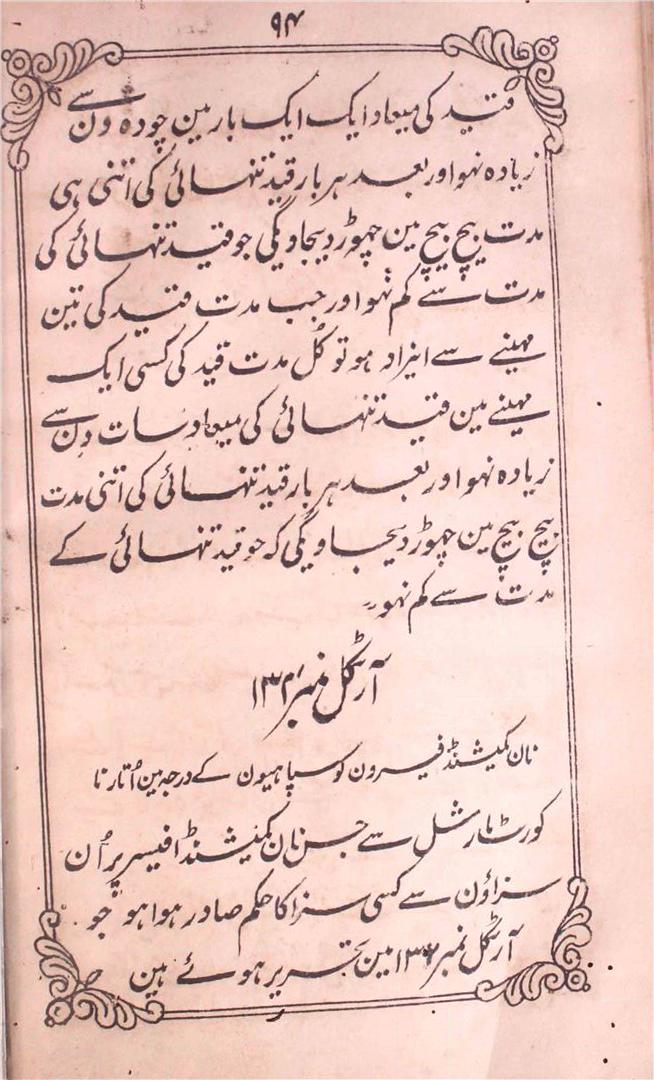 ۹۴
قید کی میعاد ایک ایک بار مین چودہ دن سے
زیادہ نہو اور بعد ہر بار قید تنہائی کی اتنی ہی
مدت بیچ بیچ مین چھوڑ دیجاویگی جو قید تنہائی کی
مدت سے کم نہو اور جب مدت قید کی تین
مہینے سے ایزاد ہو تو کُل مدت قید کی کسی ایک
مہینے مین قید تنہائی کی میعاد سات دن سے
زیادہ نہو اور بعد ہر بار قید تنہائی کی اتنی مدت
بیچ بیچ مین چھوڑ دیجاویگی کہ جو قید تنہائی کے
مدت سے کم نہو۔
آرٹکل نمبر
نان کمیشنڈ افیسرون کو سپاہیون کے درجہ مین اُتارنا
کورٹ مارشل سے جس نان کمیشنڈ افیسر پر اُن
سزاؤن سے کسی سزا کا حکم صادر ہوا ہو جو
آرٹکل نمبر مین تحریر ہوئے ہین